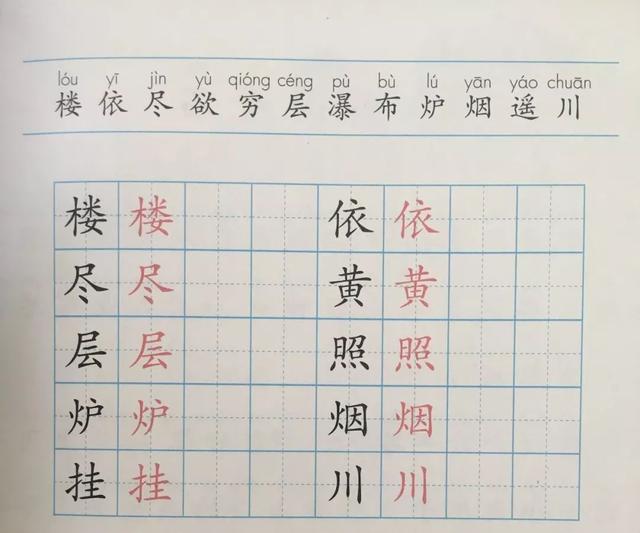 lóu yī jìn yù qióng céng pù bù lú yān yáo chuān
楼 依 尽 欲 穷 层 瀑 布 炉 烟 遥 川
楼 楼 依 依
尽 尽 黄 黄
层 层 照 照
炉 炉 烟 烟
挂 挂 川 川